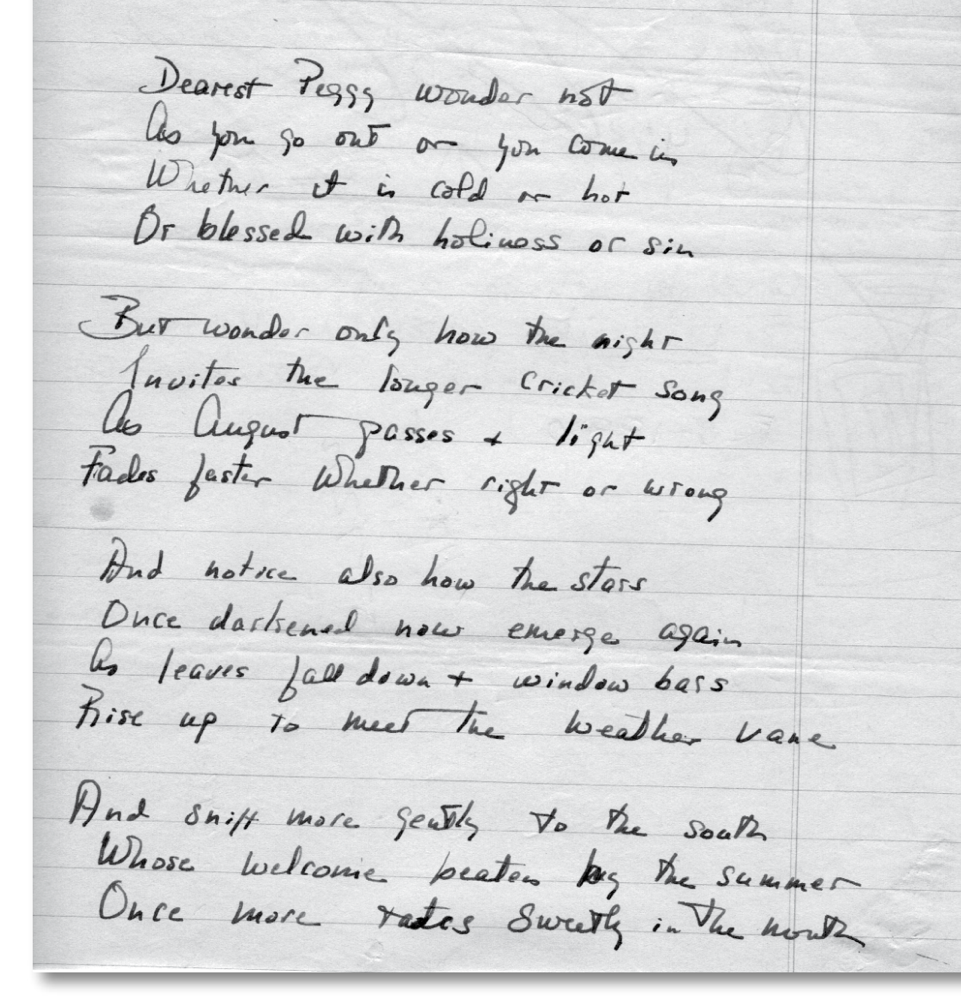 Dearest Peggy wonder not
As you go out or you come in
Whether it is cold or hot
Or blessed with holiness or sin
But wonder only how the night
Invites the longer cricket song
As August passes + light
Fades faster Whether right or wrong
And notice also how the stars
Once darkened now emerge again
As leaves fall down + window bars
Rise up to meet the weather vane
And sniff more gently to the south
Whose welcome beaten by the summer
Once more sweetly in the mouth